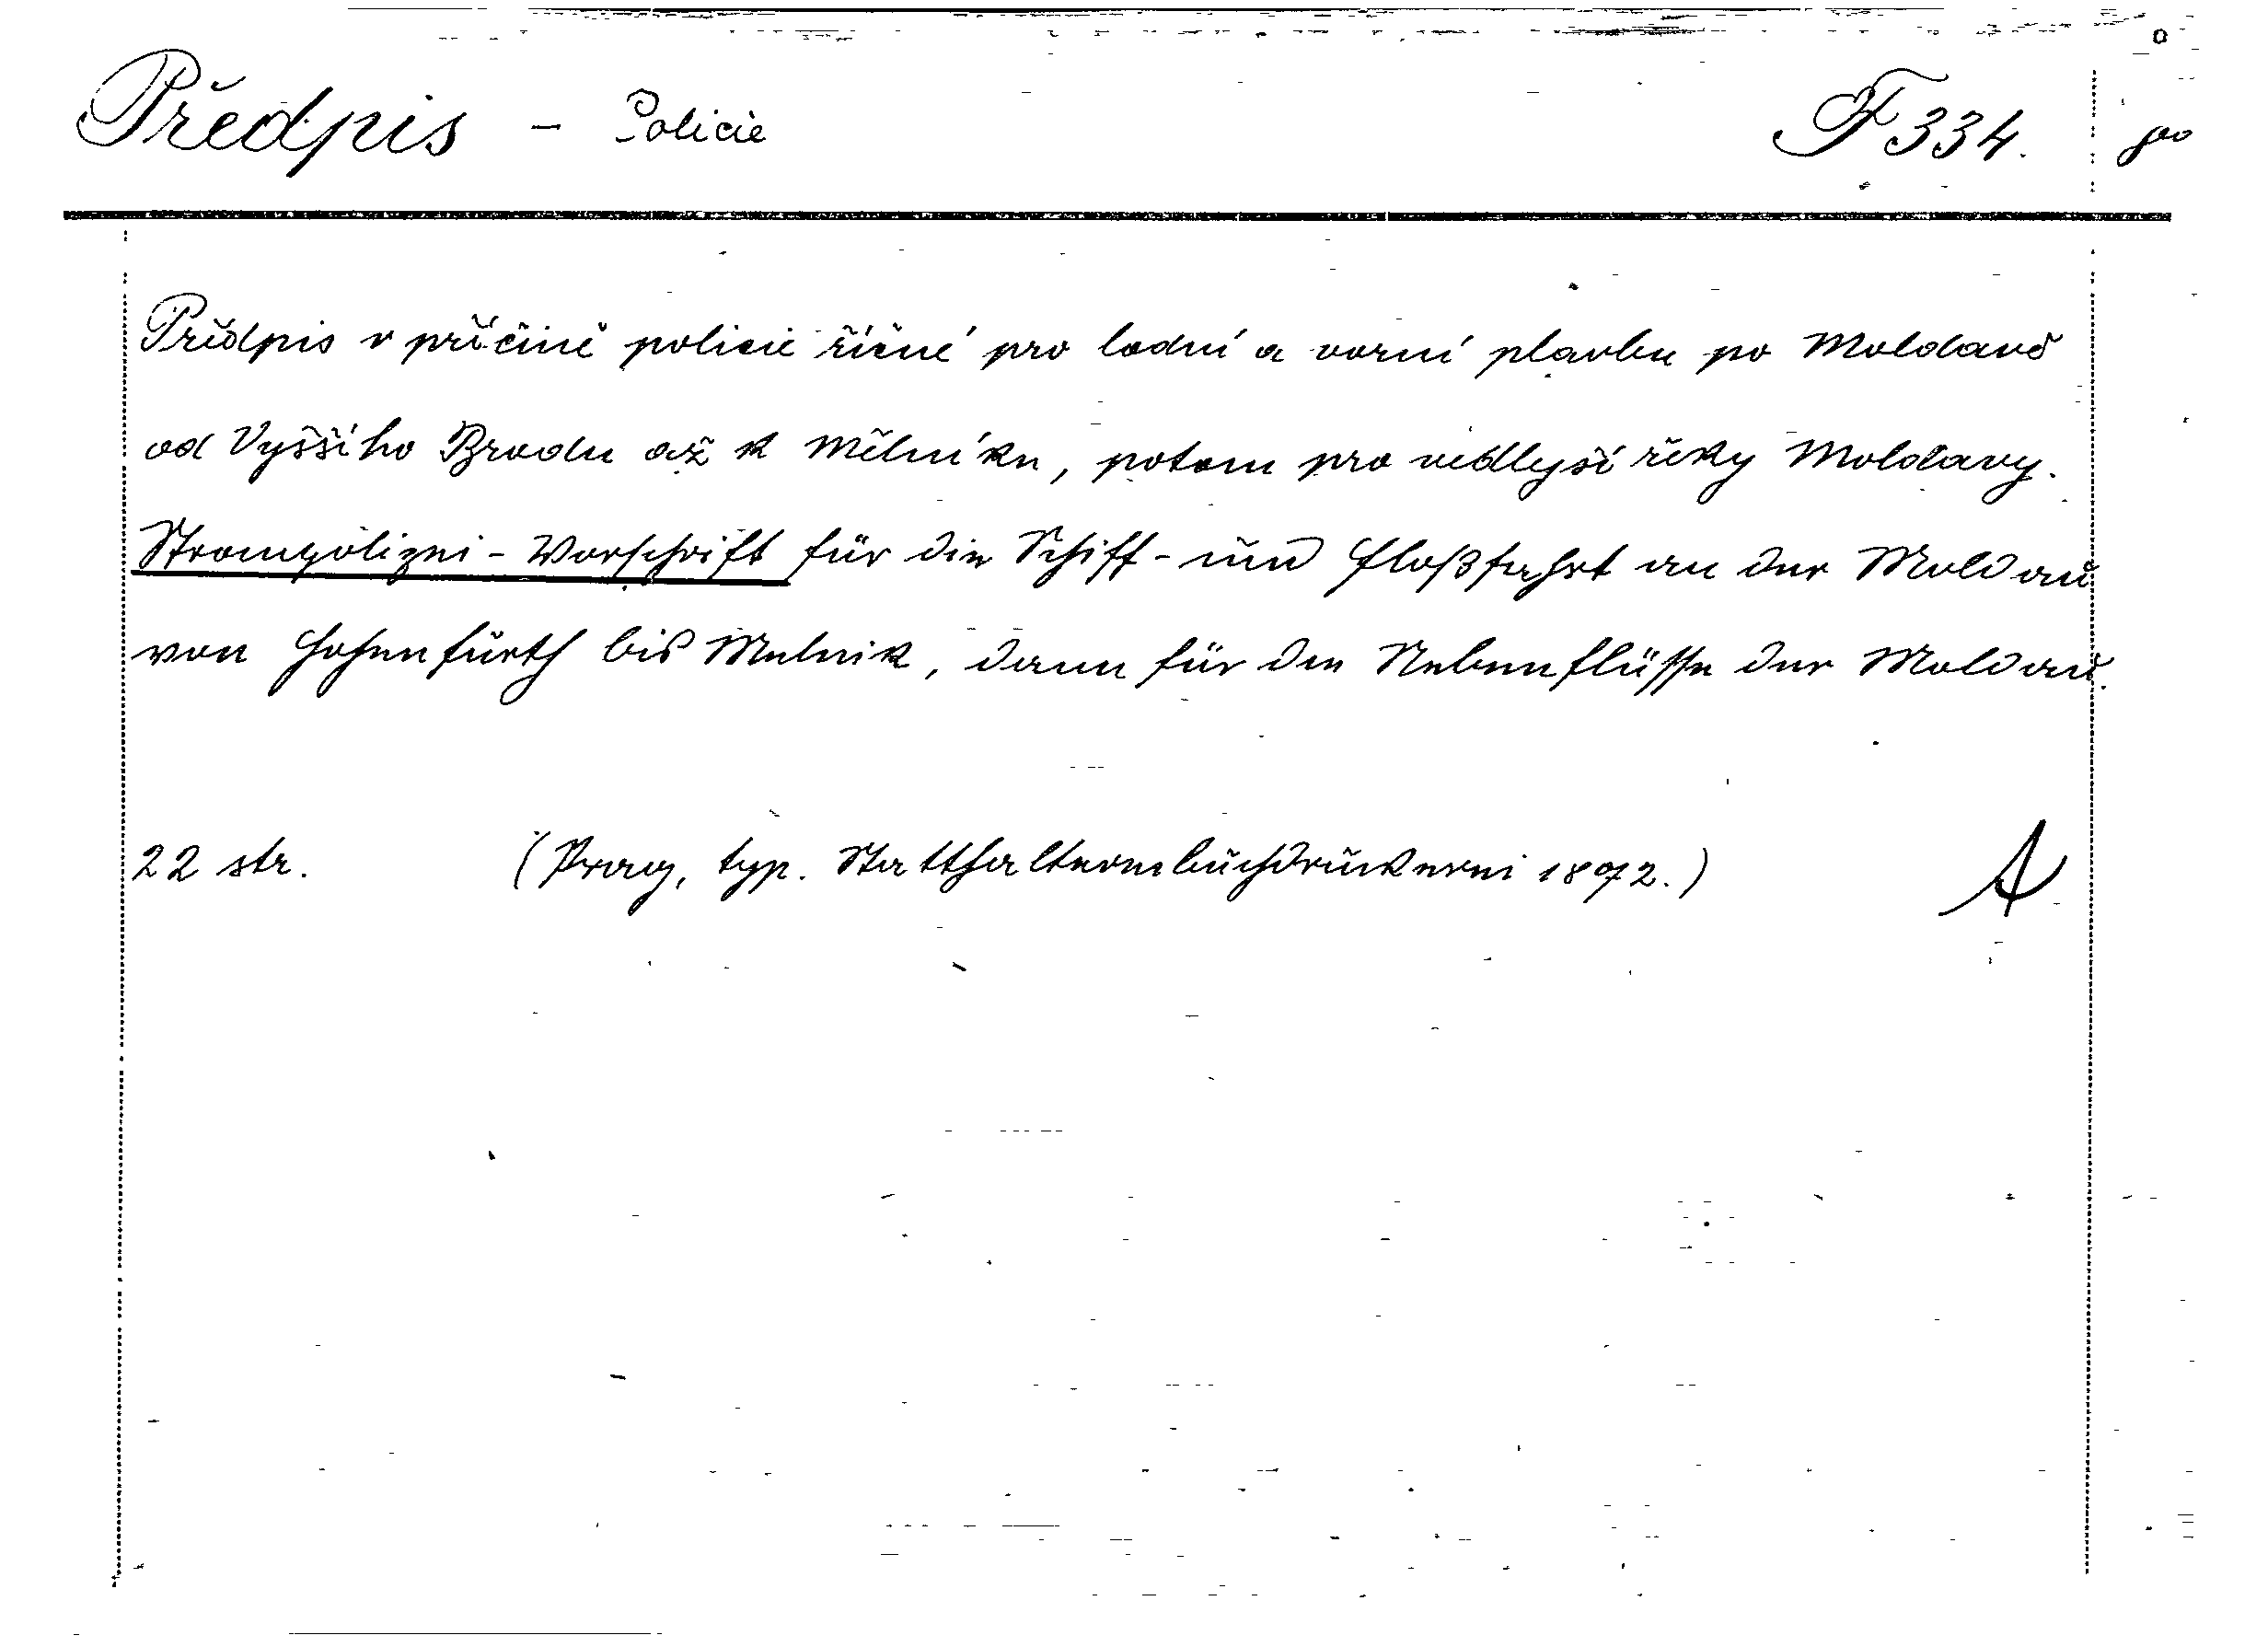 Předpis - Policie F 334. 8⁰
Předpis v příčině policie říčné pro lodní a vorní plavbu po Moldavě
od Vyššího Brodu až k Mělníku, potom pro vedlejší řeky Moldavy.
Strompolizei-Vorschrift für die Schiff- und Floßfahrt an der Moldau
von Hohenfurth bis Melnik, dann für die Nebenflüsse der Moldau.
22 str. (Prag, typ. Statthaltereibuchdruckerei 1892.) A